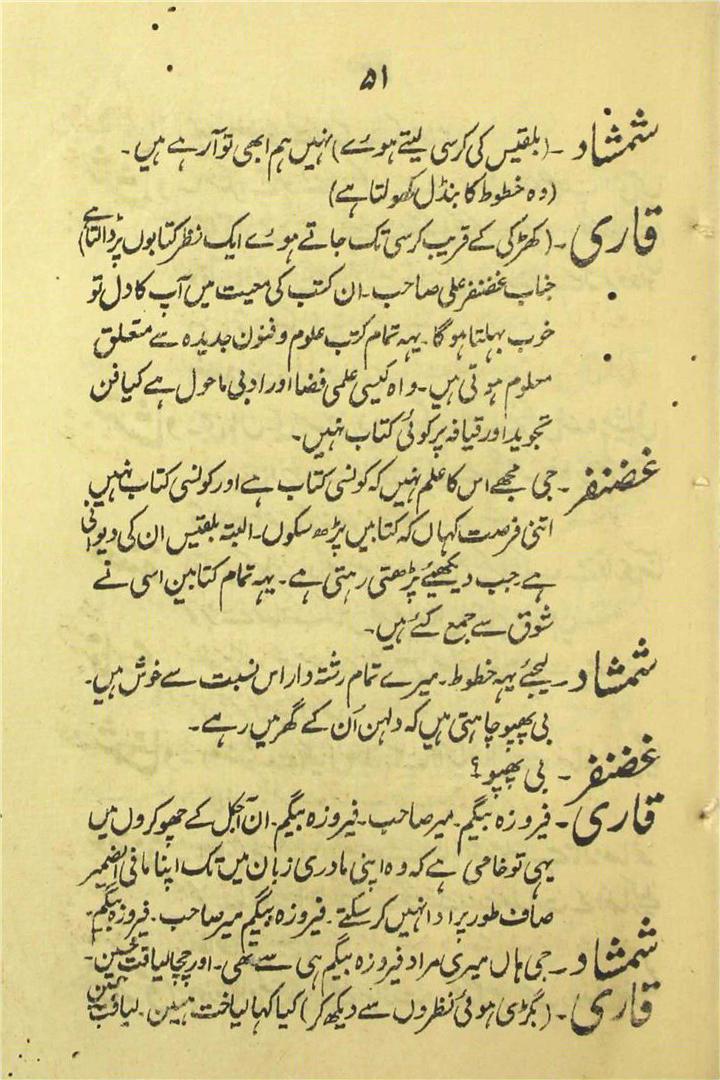 ۵۱
شمشاد ۔ (بلقیس کی کرسی لیتے ہوئے) نہیں ہم ابھی تو آرہے ہیں ۔
(وہ خطوط کا بنڈل کھولتا ہے)
قاری ۔ (کھڑکی کے قریب کرسی تک جاتے ہوئے ایک نظر کتابوں پر ڈالتا ہے)
جناب غضنفر علی صاحب ۔ ان کتب کی معیت میں آپ کا دل تو
خوب بہلتا ہوگا ۔ یہہ تمام کتب علوم و فنون جدیدہ سے متعلق
معلوم ہوتی ہیں ۔ واہ کیسی علمی فضا اور ادبی ماحول ہے کیا فن
تجوید اور قیافہ پر کوئی کتاب نہیں ۔
غضنفر ۔ جی مجھے اس کا علم نہیں کہ کونسی کتاب ہے اور کونسی کتاب نہیں
اتنی فرصت کہاں کہ کتابیں پڑھ سکوں ۔ البتہ بلقیس ان کی دیوانی
ہے جب دیکھئے پڑھتی رہتی ہے ۔ یہہ تمام کتابین اسی نے
شوق سے جمع کئے ہیں ۔
شمشاد ۔ لیجئے یہہ خطوط ۔ میرے تمام رشتہ دار اس نسبت سے خوش ہیں ۔
بی پھپو چاہتی ہیں کہ دلہن اُن کے گھر میں رہے ۔
غضنفر ۔ بی پھپو ؟
قاری ۔ فیروزہ بیگم ۔ میر صاحب ۔ فیروزہ بیگم ۔ ان آجکل کے چھوکروں میں
یہی تو خامی ہے کہ وہ اپنی مادری زبان میں تک اپنا مافی الضمیر
صاف طور پر ادا نہیں کرسکتے ۔ فیروزہ بیگم میر صاحب ۔ فیروزہ بیگم ۔
شمشاد ۔ جی ہاں میری مراد فیروزہ بیگم ہی سے تھی ۔ اور چچا لیاقت حسین ۔
قاری ۔ (بگڑی ہوئی نظروں سے دیکھ کر) کیا کہا لیاخت